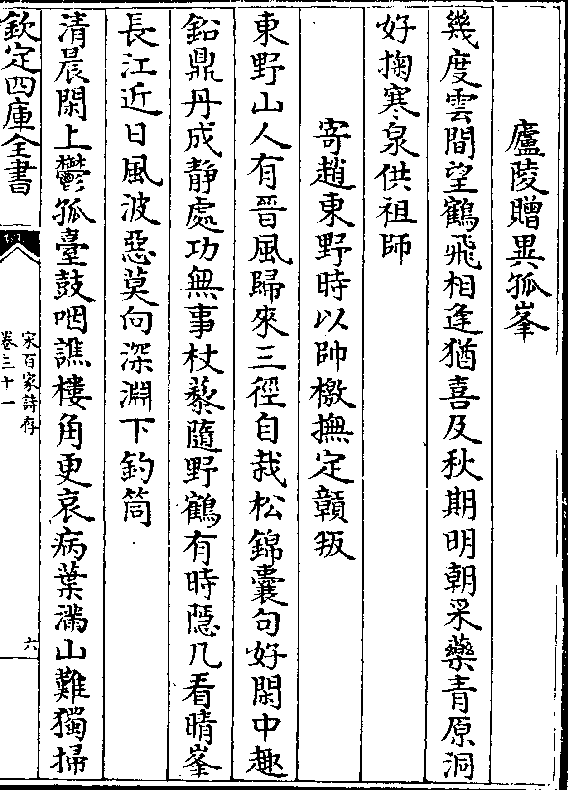 廬陵贈異孤峯
幾度雲間望鶴飛相逢猶喜及秋期明朝采藥青原洞
好掬寒泉供祖師
寄趙東野時以帥檄撫定贛叛
東野山人有晉風歸來三徑自栽松錦囊句好閑中趣
鉛鼎丹成静處功無事杖藜隨野鶴有時隱几看晴峯
長江近日風波惡莫向深淵下釣筒
清晨閑上鬱孤臺鼓咽譙樓角更哀病葉滿山難獨掃
欽定四庫全書
宋百家詩存
卷三十一
六